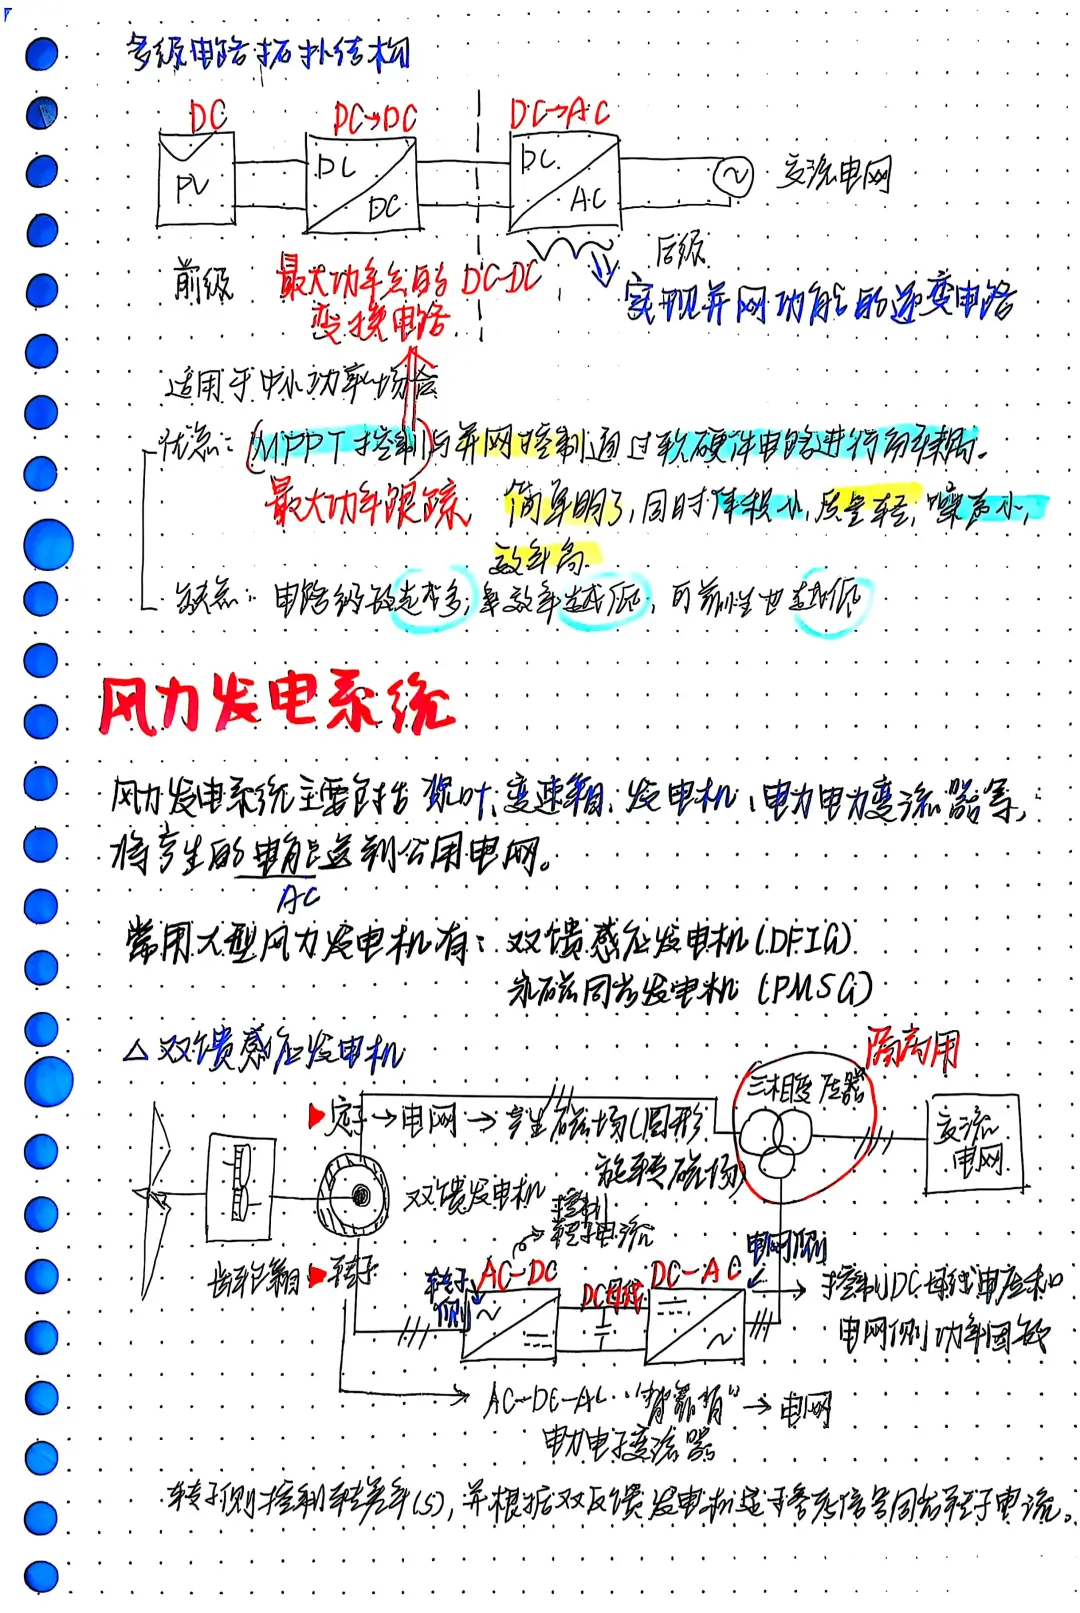 多级电路拓扑结构
DC DC→DC DC→AC
PV DC DC DC AC ~ 交流电网
前级 最大功率点的DC-DC 后级
变换电路 实现并网功能的逆变电路
适用于中小功率场合
优点：(MPPT控制)与并网控制通过软硬件电路进行解耦。
最大功率跟踪 简单明了，同时体积小，质量轻，噪声小，
效率高
缺点：电路级数越多，效率越低，可靠性也越低
风力发电系统
风力发电系统主要包括桨叶、变速箱、发电机、电力电力变流器等，
将产生的电能送到公用电网。
AC
常用大型风力发电机有：双馈感应发电机(DFIG)
永磁同步发电机(PMSG)
△双馈感应发电机
隔离用
三相变压器
定子→电网→产生磁场(圆形
旋转磁场)
交流
电网
双馈发电机
控制
转子电流
齿轮箱
转子
转子
侧
AC-DC
DC母线
DC-AC
电网侧
~ ~
→控制DC母线电压和
电网侧功率因数
AC-DC-AC "背靠背"→电网
电力电子变流器
转子侧控制转差率(s)，并根据双反馈发电机定子参考信号同步转子电流。